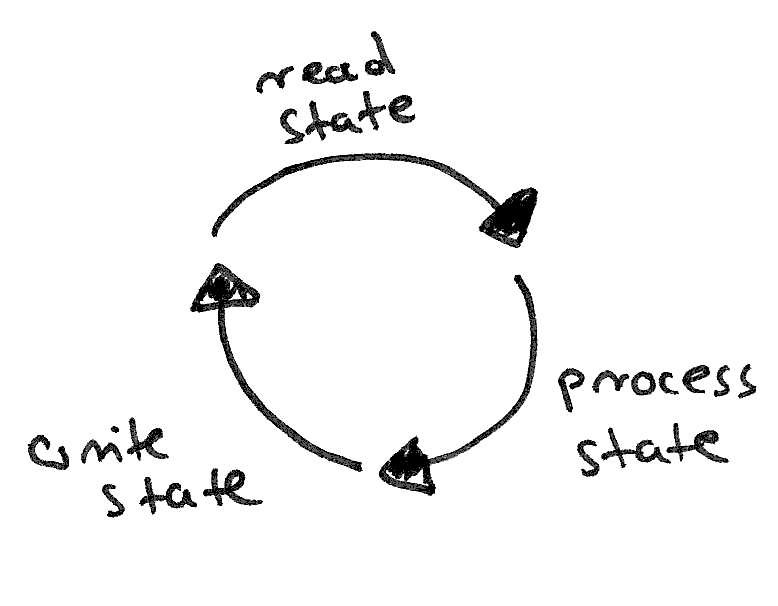 read
state
process
state
write
state